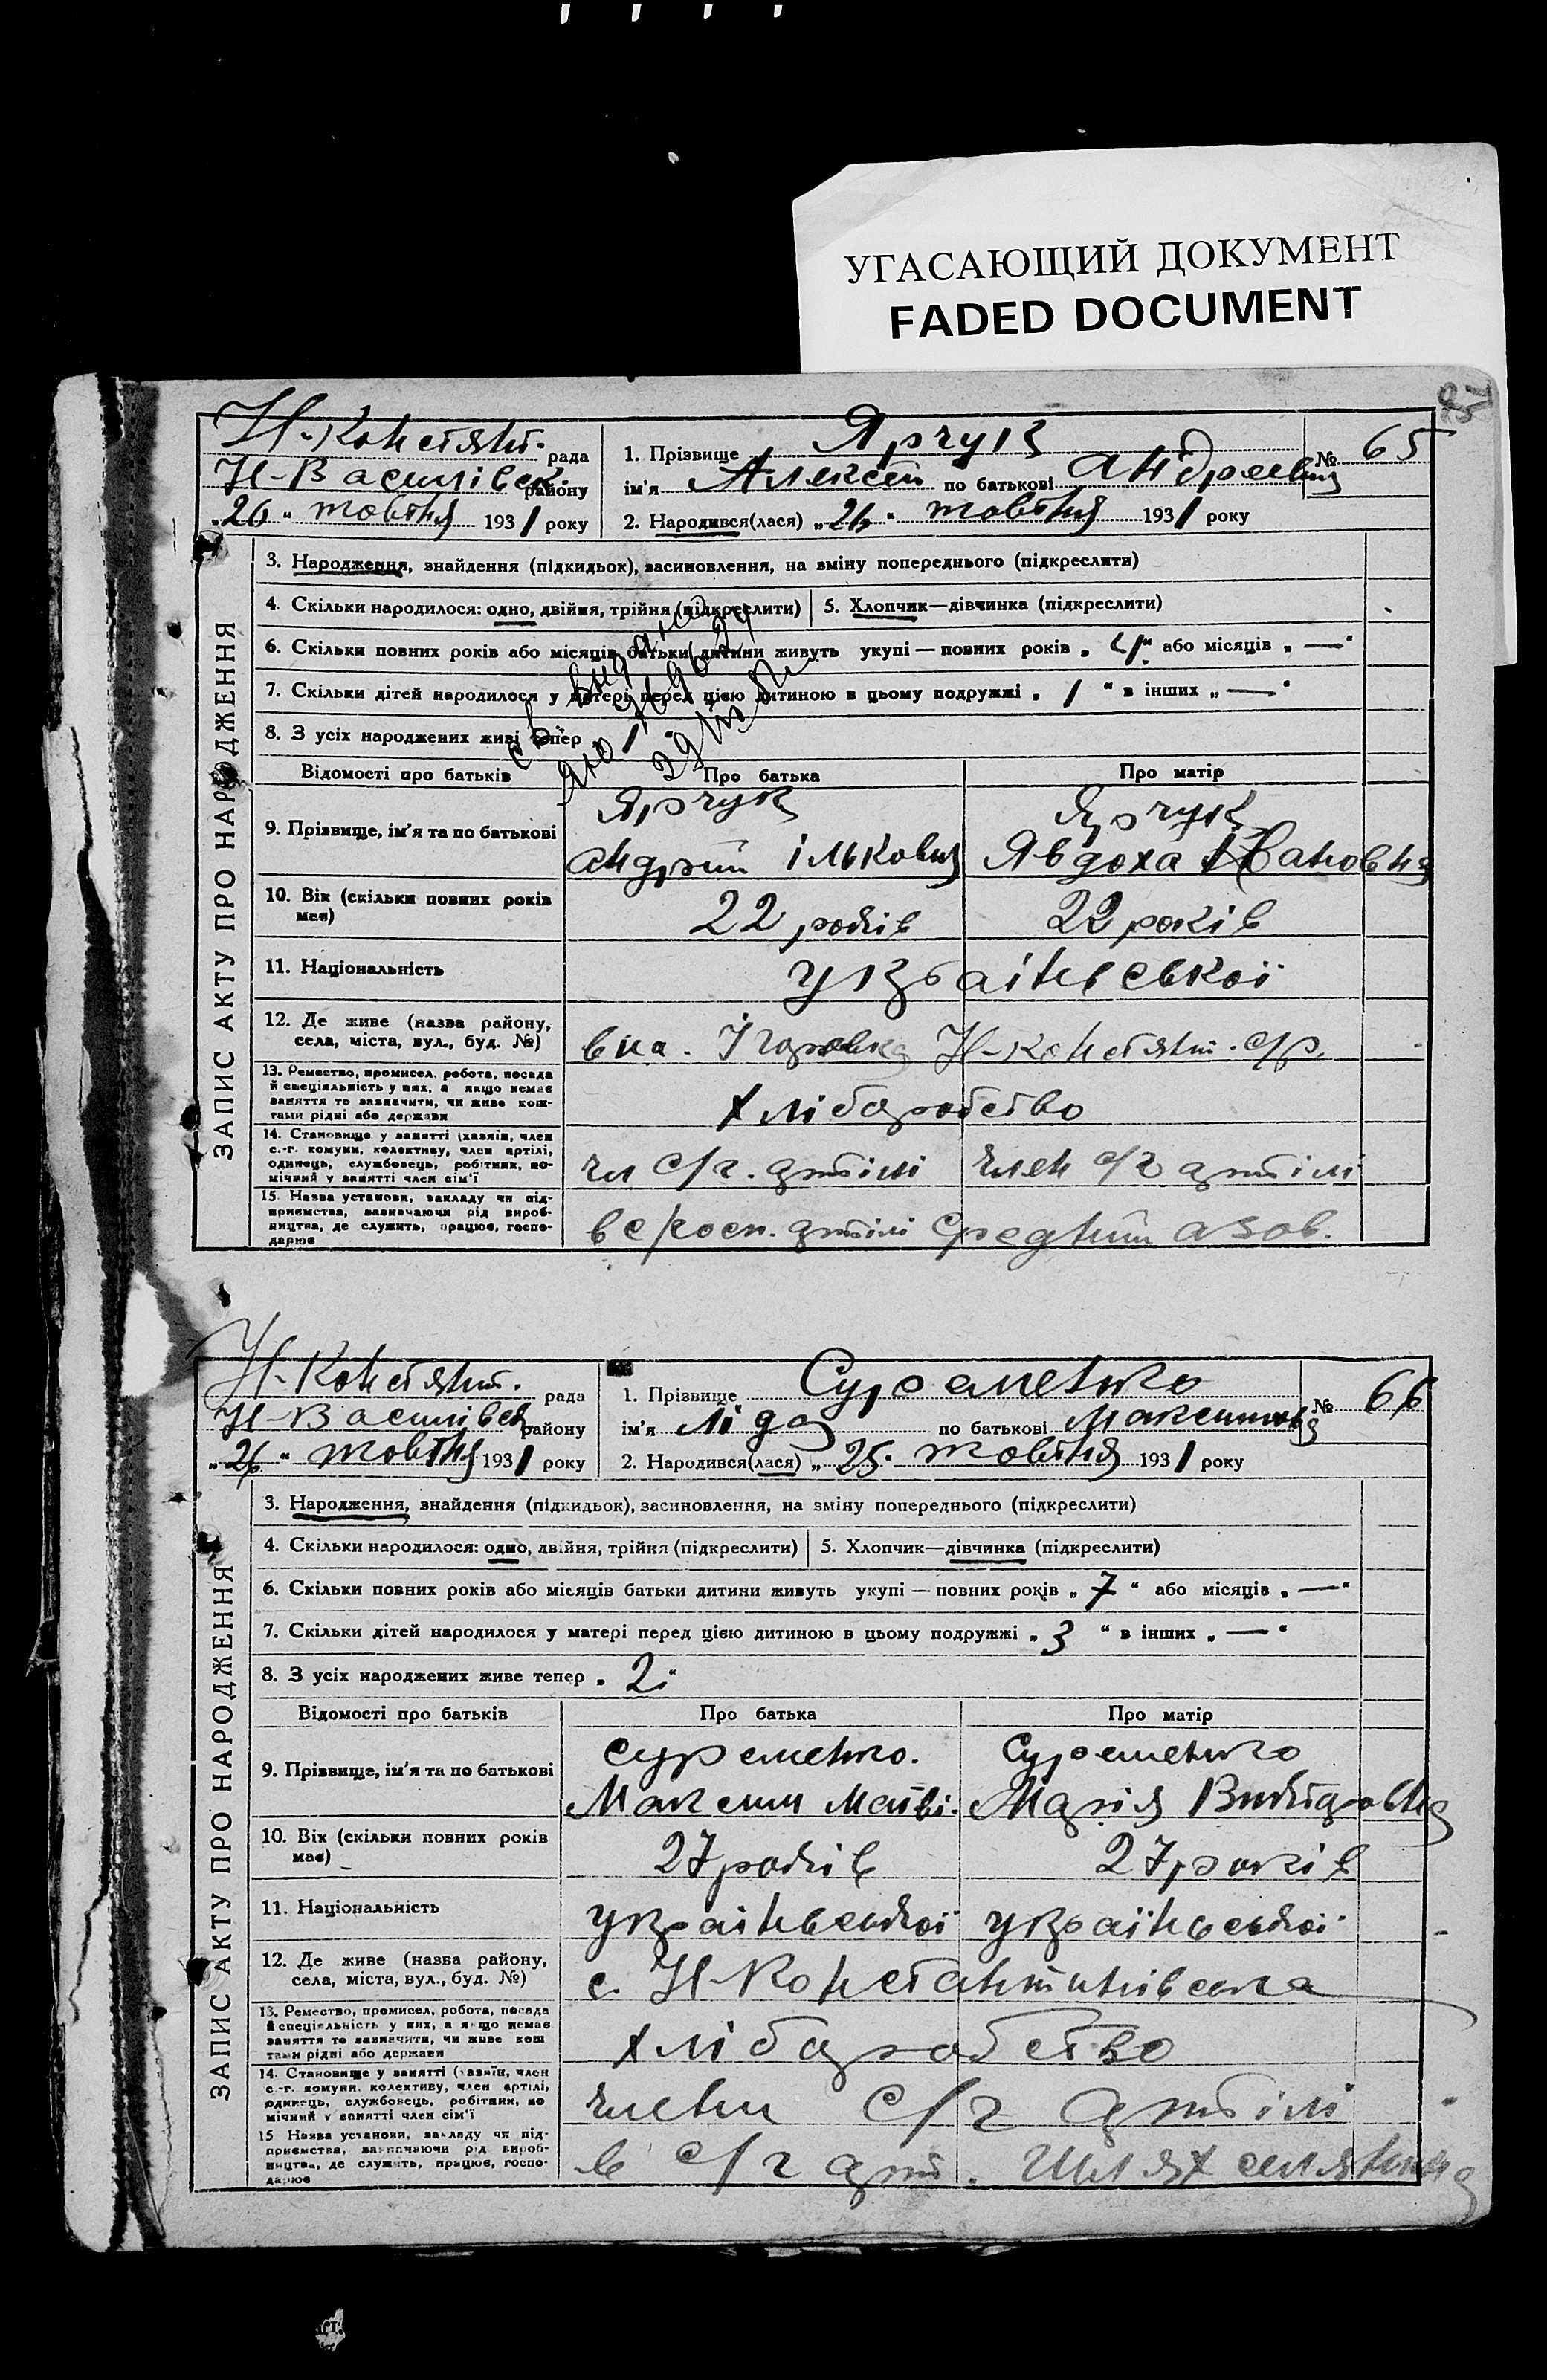 УГАСАЮЩИЙ ДОКУМЕНТ
FADED DOCUMENT
Н-Констянт. рада
Н-Василівськ. району
„26“ жовтня 1931 року
1. Прізвище Ярчук
ім'я Алексей по батькові Андреевич
№ 65
2. Народився(лася) „26“ жовтня 1931 року
ЗАПИС АКТУ ПРО НАРОДЖЕННЯ
3. Народження, знайдення (підкидьок), засиновлення, на зміну попереднього (підкреслити)
4. Скільки народилося: одно, двійня, трійня (підкреслити)
5. Хлопчик—дівчинка (підкреслити)
6. Скільки повних років або місяців батьки дитини живуть укупі — повних років „4“ або місяців „—“
7. Скільки дітей народилося у матері перед цією дитиною в цьому подружжі „1“ в інших „—“
8. З усіх народжених живі тепер
св. видано
Відомості про батьків
Про батька
Про матір
9. Прізвище, ім'я та по батькові
Ярчук
АндрійІлькович
Ярчук
Явдоха Івановня
10. Вік (скільки повних років має)
22 років
22 років
11. Національність
української
12. Де живе (назва району, села, міста, вул., буд. №)
Н-Констянт. с/р.
13. Ремество, промисел, робота, посада й спеціяльність у них, а якщо немає заняття то зазначити, чи живе коштами рідні або держави
хліборобство
14. Становище у занятті (хазяїн, член с.-г. комуни, колективу, член артілі, одинець, службовець, робітник, помічний у занятті член сім'ї
чл с/г. артілі
член с/г артілі
15. Назва установи, закладу чи підприємства, зазначаючи рід виробництва, де служить, працює, господарює
в с/госп. артілі Средний азов.
Н-Констянт. рада
Н-Василівськ району
„26“ жовтня 1931 року
1. Прізвище Суременко
ім'я Ліда по батькові Максимовня
№ 66
2. Народився(лася) „25“ жовтня 1931 року
ЗАПИС АКТУ ПРО НАРОДЖЕННЯ
3. Народження, знайдення (підкидьок), засиновлення, на зміну попереднього (підкреслити)
4. Скільки народилося: одно, двійня, трійня (підкреслити)
5. Хлопчик—дівчинка (підкреслити)
6. Скільки повних років або місяців батьки дитини живуть укупі — повних років „7“ або місяців „—“
7. Скільки дітей народилося у матері перед цією дитиною в цьому подружжі „3“ в інших „—“
8. З усіх народжених живе тепер „2“
Відомості про батьків
Про батька
Про матір
9. Прізвище, ім'я та по батькові
Суременко.
Максим Матві.
Суременко
Марія
10. Вік (скільки повних років має)
27 років
27 років
11. Національність
української
української
12. Де живе (назва району, села, міста, вул., буд. №)
с. Н-Константинівська
13. Ремество, промисел, робота, посада й спеціяльність у них, а якщо немає заняття то зазначити, чи живе коштами рідні або держави
хліборобство
14. Становище у занятті (хазяїн, член с.-г. комуни, колективу, член артілі, одинець, службовець, робітник, помічний у занятті член сім'ї
члени с/г артілі
15 Назва установи, закладу чи підприємства, зазначаючи рід виробництва, де служить, працює, господарює
в с/г арт. Шлях селянина